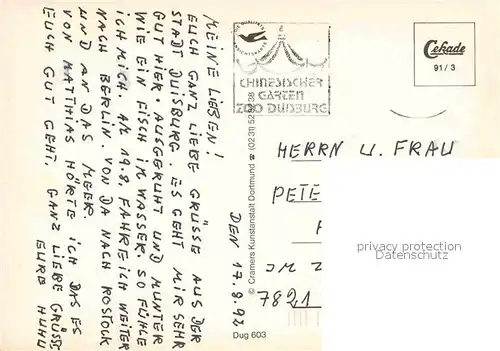 MEINE LIEBEN!
EUCH GANZ LIEBE GRÜSSE AUS DER
STADT DUISBURG. ES GEHT MIR SEHR
GUT HIER. AUSGERUHT UND MUNTER
WIE EIN FISCH IM WASSER. SO FÜHLE
ICH MICH. AM 19.8. FAHRE ICH WEITER
NACH BERLIN. VON DA NACH ROSTOCK
UND AN DAS MEER.
VON MATTHIAS HÖRTE ICH DAS ES
EUCH GUT GEHT. GANZ LIEBE GRÜSSE
EURE HUHU
DEN 17.8.92
Dug 603
© Cramers Kunstanstalt Dortmund ☎ (02 31) 52 38
CHINESISCHER
GARTEN
ZOO DUISBURG
Cekade
91/3
HERRN U. FRAU
PETE
IM Z
7821
privacy protection
Datenschutz